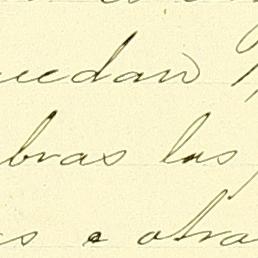 uedan
bras las
s o otra